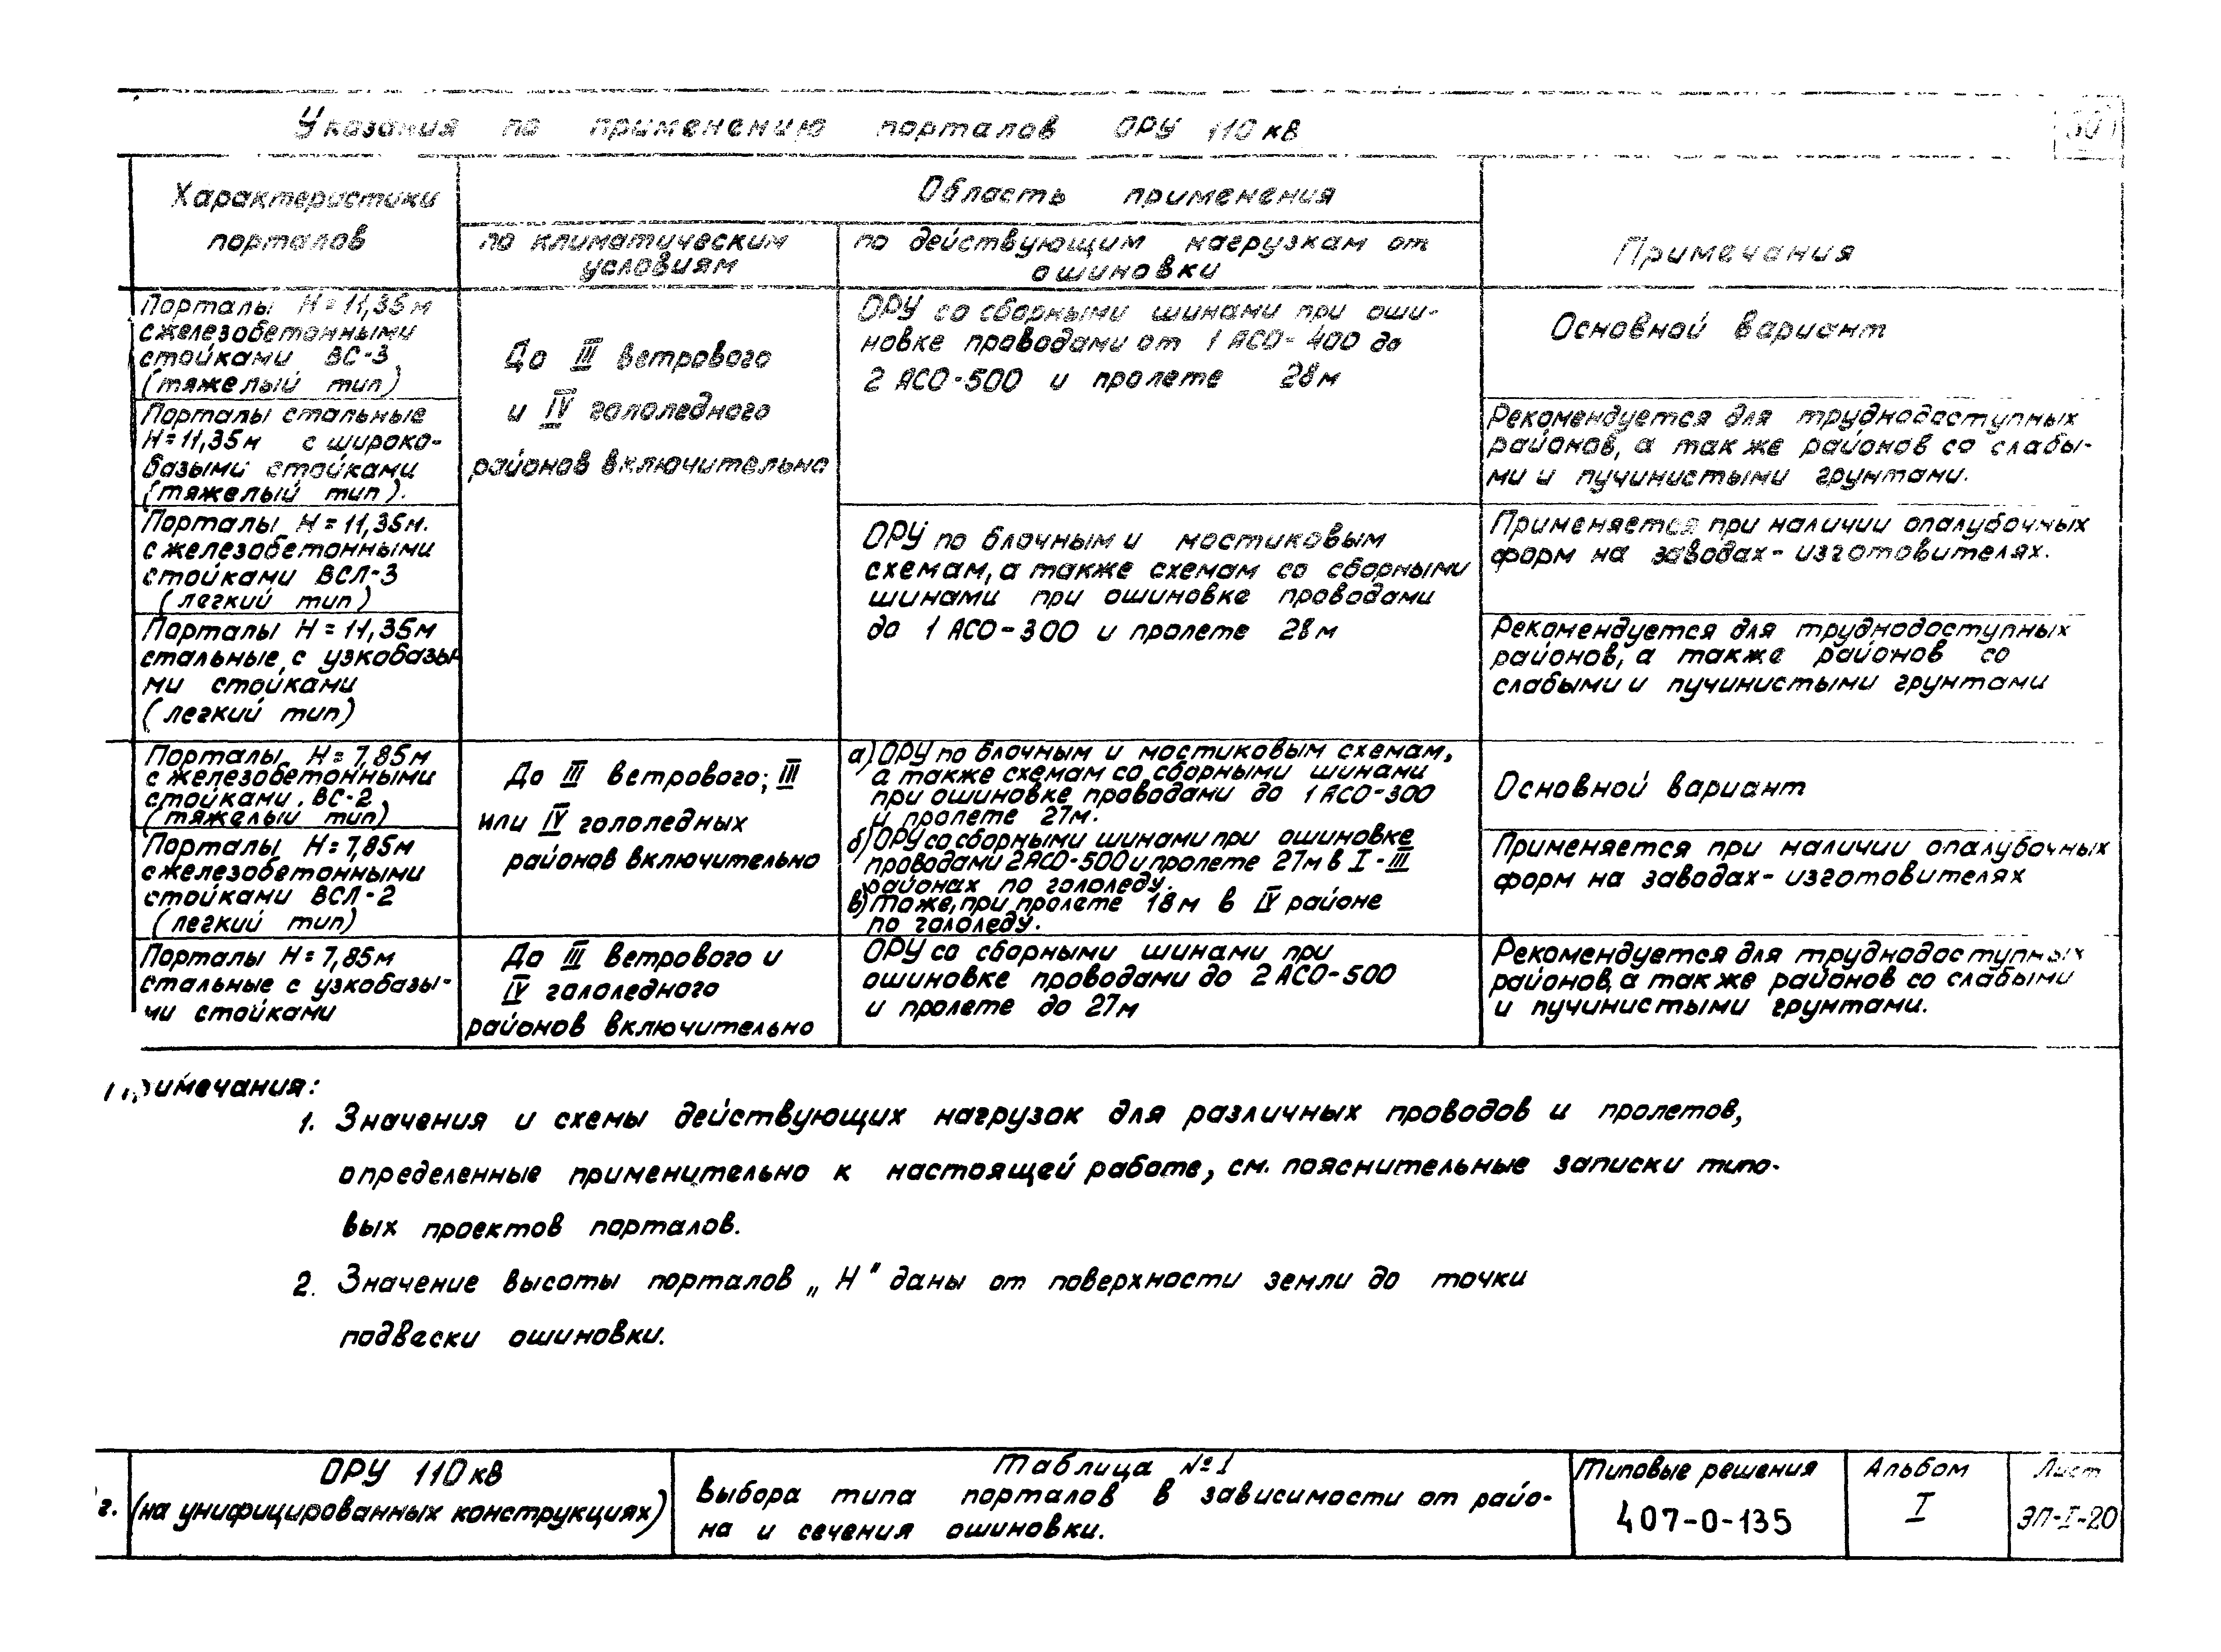 Указания по применению порталов ОРУ 110 кв
30
Характеристики
порталов
Область применения
по климатическим
условиям
по действующим нагрузкам от
ошиновки
Примечания
Порталы Н=11,35м
с железобетонными
стойками ВС-3
(тяжелый тип)
Порталы стальные
Н=11,35м с широко-
базыми стойками
(тяжелый тип).
Порталы Н=11,35м.
с железобетонными
стойками ВСЛ-3
(легкий тип)
Порталы Н=11,35м
стальные с узкобазы-
ми стойками
(легкий тип)
До III ветрового
и IV гололедного
районов включительно
ОРУ со сборными шинами при оши-
новке проводами от 1 АСО-400 до
2 АСО-500 и пролете 28м
ОРУ по блочным и мостиковым
схемам, а также схемам со сборными
шинами при ошиновке проводами
до 1 АСО-300 и пролете 28м
Основной вариант
Рекомендуется для труднодоступных
районов, а так же районов со слабы-
ми и пучинистыми грунтами.
Применяется при наличии опалубочных
форм на заводах-изготовителях.
Рекомендуется для труднодоступных
районов, а также районов со
слабыми и пучинистыми грунтами
Порталы Н=7,85м
с железобетонными
стойками. ВС-2
(тяжелый тип)
Порталы Н=7,85м
с железобетонными
стойками ВСЛ-2
(легкий тип)
До III ветрового; III
или IV гололедных
районов включительно
а) ОРУ по блочным и мостиковым схемам,
а также схемам со сборными шинами
при ошиновке проводами до 1 АСО-300
и пролете 27м.
б) ОРУ со сборными шинами при ошиновке
проводами 2АСО-500 и пролете 27м в I-III
районах по гололеду.
в) то же, при пролете 18м в IV районе
по гололеду.
Основной вариант
Применяется при наличии опалубочных
форм на заводах-изготовителях
Порталы Н=7,85м
стальные с узкобазы-
ми стойками
До III ветрового и
IV гололедного
районов включительно
ОРУ со сборными шинами при
ошиновке проводами до 2 АСО-500
и пролете до 27м
Рекомендуется для труднодоступных
районов, а так же районов со слабыми
и пучинистыми грунтами.
Примечания:
1. Значения и схемы действующих нагрузок для различных проводов и пролетов,
определенные применительно к настоящей работе, см. пояснительные записки типо-
вых проектов порталов.
2. Значение высоты порталов „Н" даны от поверхности земли до точки
подвески ошиновки.
г.
ОРУ 110 кв
(на унифицированных конструкциях)
Таблица №1
выбора типа порталов в зависимости от райо-
на и сечения ошиновки.
Типовые решения
407-0-135
Альбом
I
Лист
ЭП-I-20